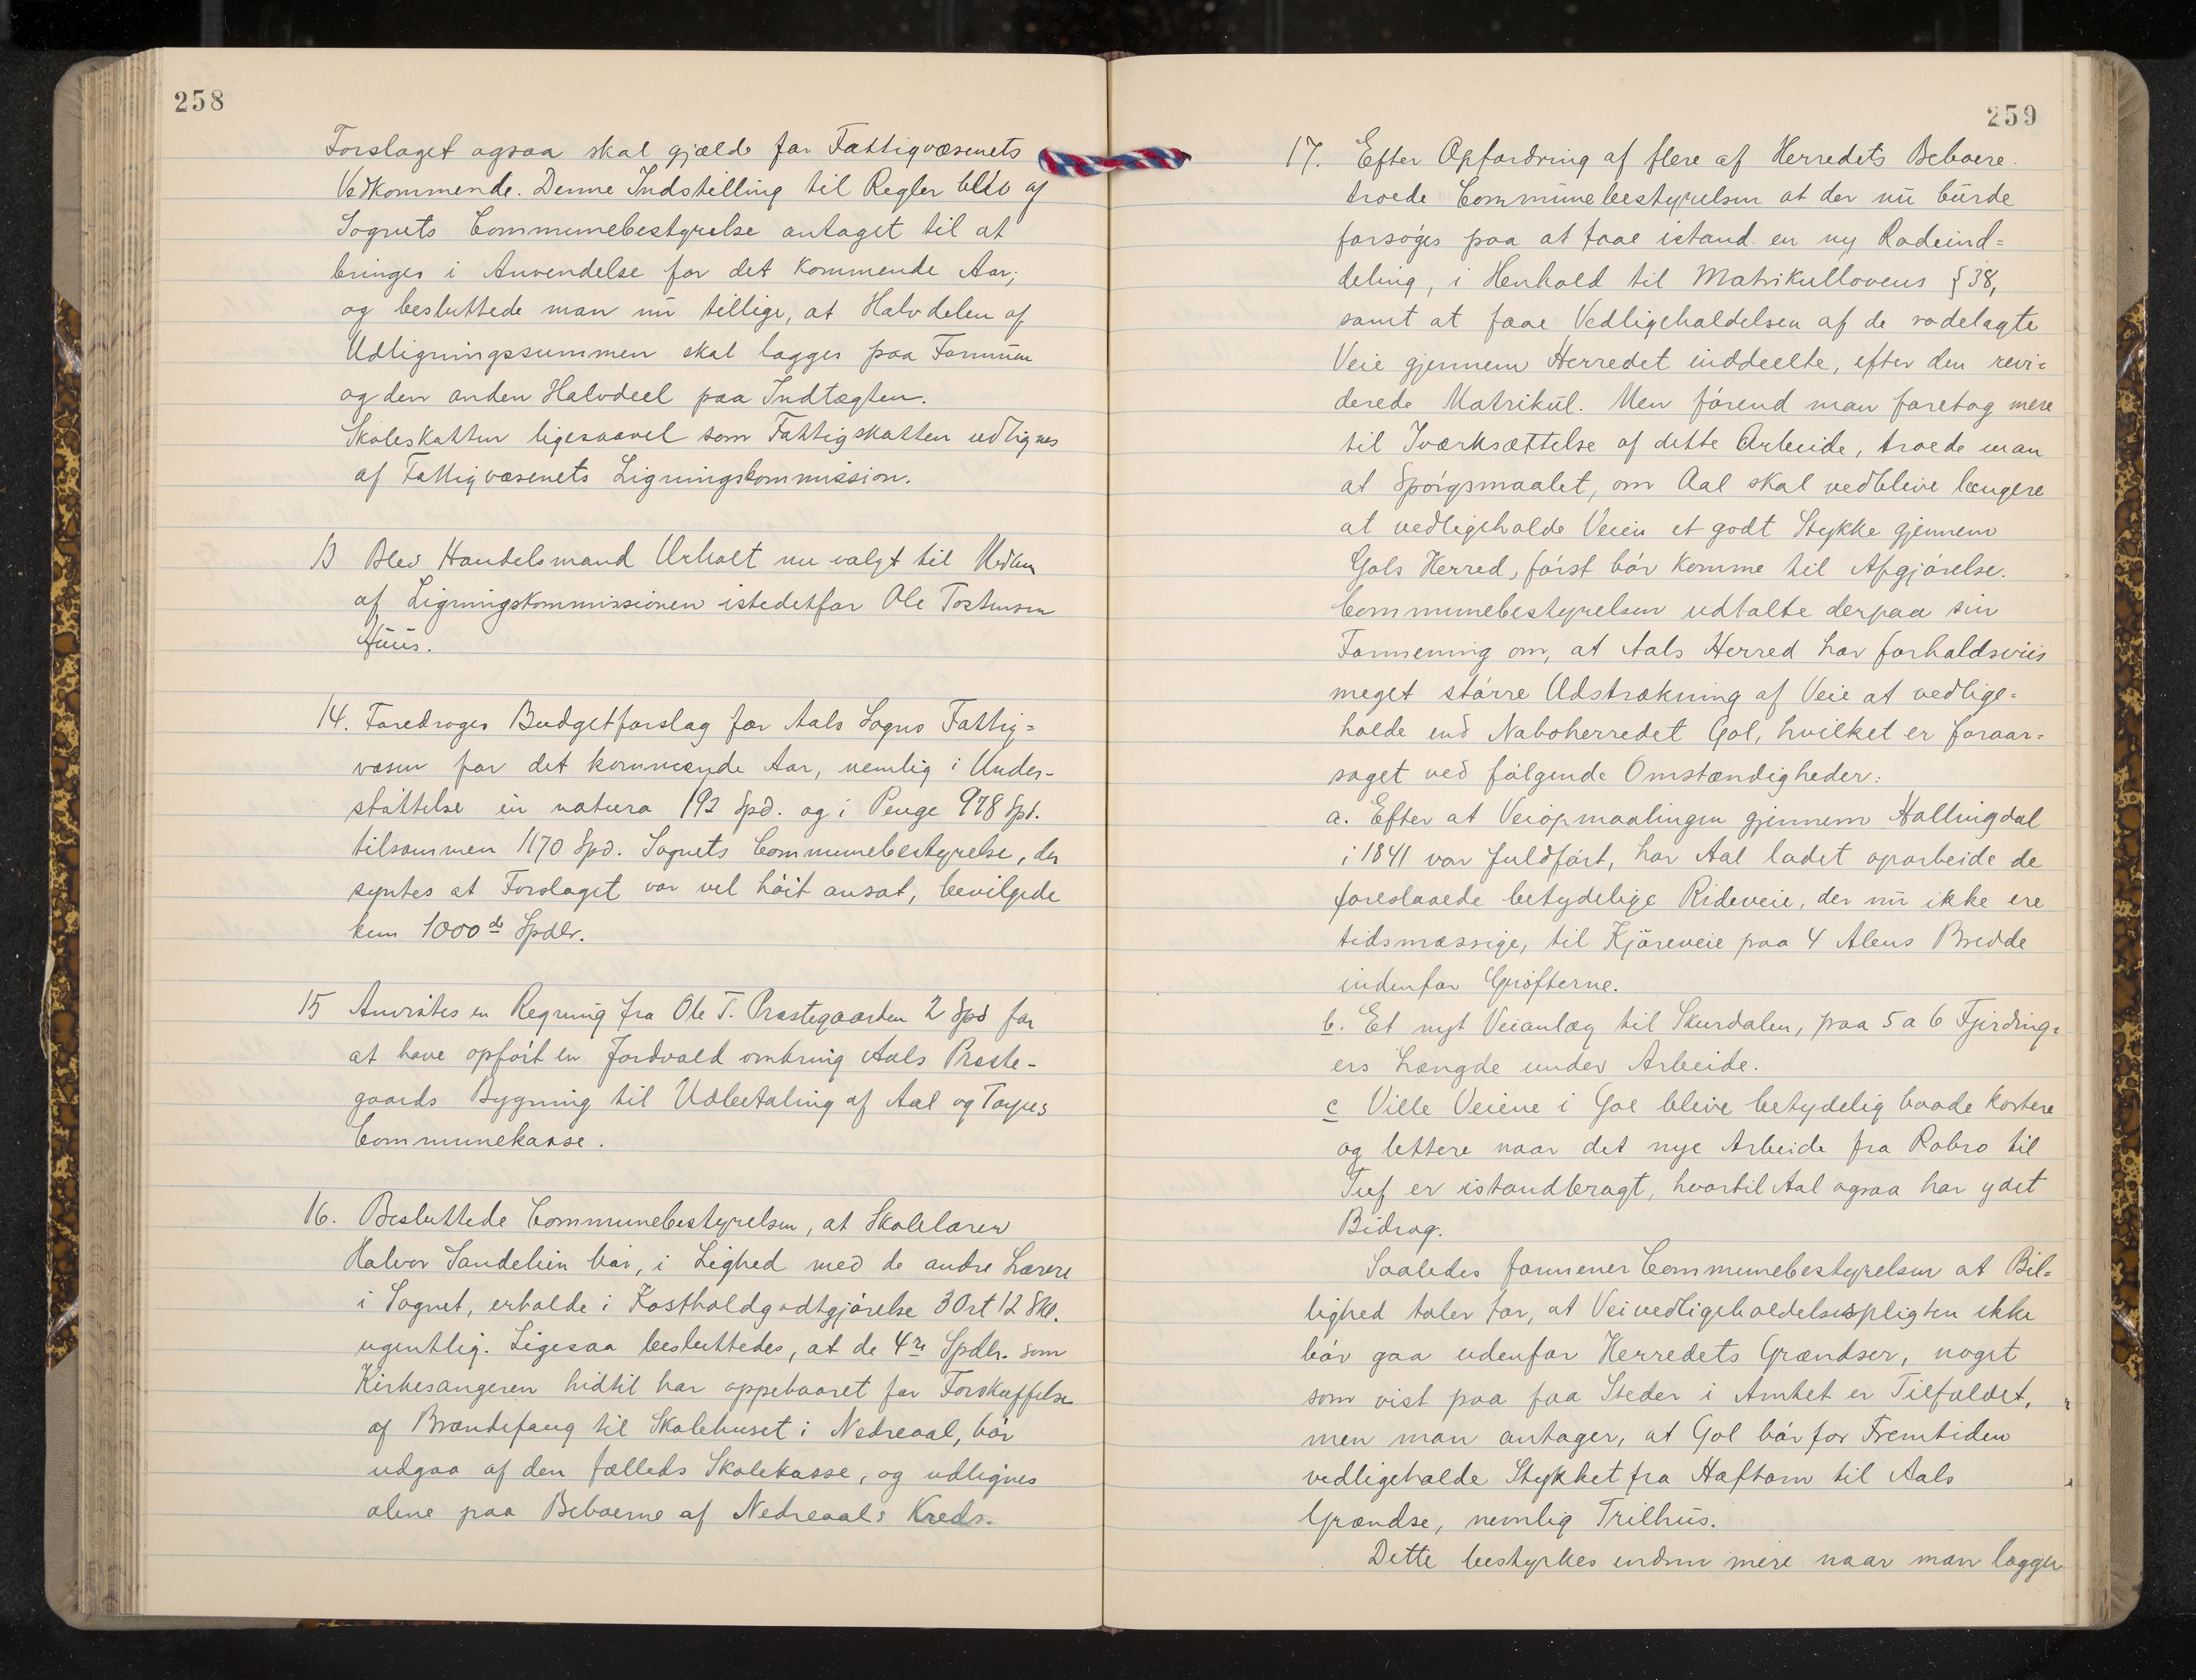 258
Forslaget ogsaa skal gjælde for Fattigvæsenets
Vedkommende. Denne Indstilling til Regler blev af
Sognets Communebestyrelse antaget til at
bringes i Anvendelse for det kommende Aar;
og besluttede man nu tillige, at Halvdelen af
Udligningssummen skal lægges paa Formuen
og den anden Halvdeel paa Indtægten.
Skoleskatten ligesaavel som Fattigskatten udlignes
af Fattigvæsenets Ligningskommission.
13 Blev Handelsmand Urholt nu valgt til Medlem
af Ligningskommissionen istedetfor Ole Tostensen
Huus.
14. Foredroges Budgetforslag for Aals Sogns Fattig=
væsen for det kommende Aar, nemlig i Under-
støttelse in natura 192 Spd. og i Penge 978 Spd.
tilsammen 1170 Spd. Sognets Communebestyrelse, der
syntes at Forslaget var vel høit ansat, bevilgede
kun 1000 de Spdlr.
15 Anvistes en Regning fra Ole T. Præstegaarden 2 Spd for
at have opført en Jordvold omkring Aals Præste-
gaards Bygning til Udbetaling af Aal og Torpes
Communekasse.
16. Besluttede Communebestyrelsen, at Skolelærer
Halvor Sandelien bør, i Lighed med de andre Lærere
i Sognet, erholde i Kostholdgodtgjørelse 3 Ort 12 Sk.
ugentlig. Ligesaa besluttedes, at de 4re Spdlr. som
Kirkesangeren hidtil har oppebaaret for Forskaffelse
af Brændefang til Skolehuset i Nedreaal, bør
udgaa af den fælleds Skolekasse, og udlignes
alene paa Beboerne af Nedreaals Kreds.
259
17. Efter Opfordring af flere af Herredets Beboere
troede Communebestyrelsen at der nu burde
forsøges paa at faae istand en ny Rodeind=
deling, i Henhold til Matrikullovens § 38,
samt at faae Vedligeholdelsen af de rodelagte
Veie gjennem Herredet inddeelte, efter den revi=
derede Matrikul. Men førend man foretog mere
til Iværksættelse af dette Arbeide, troede man
at Spørgsmaalet, om Aal skal vedblive længere
at vedligeholde Veien et godt Stykke gjennem
Gols Herred, først bør komme til Afgjørelse.
Communebestyrelsen udtalte derpaa sin
Formening om, at Aals Herred har forholdsviis
meget større Udstrækning af Veie at vedlige=
holde end Naboherredet Gol, hvilket er foraar=
saget ved følgende Omstændigheder:
a. Efter at Veiopmaalingen gjennem Hallingdal
i 1841 var fuldført, har Aal ladet oparbeide de
foreslaaede betydelige Rideveie, der nu ikke ere
tidsmæssige, til Kjøreveie paa 4 Alens Bredde
indenfor Grøfterne.
b. Et nyt Veianlæg til Skurdalen, paa 5 a 6 Fjerding=
ers Længde under Arbeide.
c Ville Veiene i Gol blive betydelig baade kortere
og lettere naar det nye Arbeide fra Robro til
Tuf er istandbragt, hvortil Aal ogsaa har ydet
Bidrag.
Saaledes formener Communebestyrelsen at Bil=
lighed taler for, at Veivedligeholdelsespligten ikke
bør gaa udenfor Herredets Grændser, noget
som vist paa faa Steder i Amtet er Tilfældet,
men man antager, at Gol bør for Fremtiden
vedligeholde Stykket fra Haftorn til Aals
Grændse, nemlig Trilhus.
Dette bestyrkes endnu mere naar man lægger